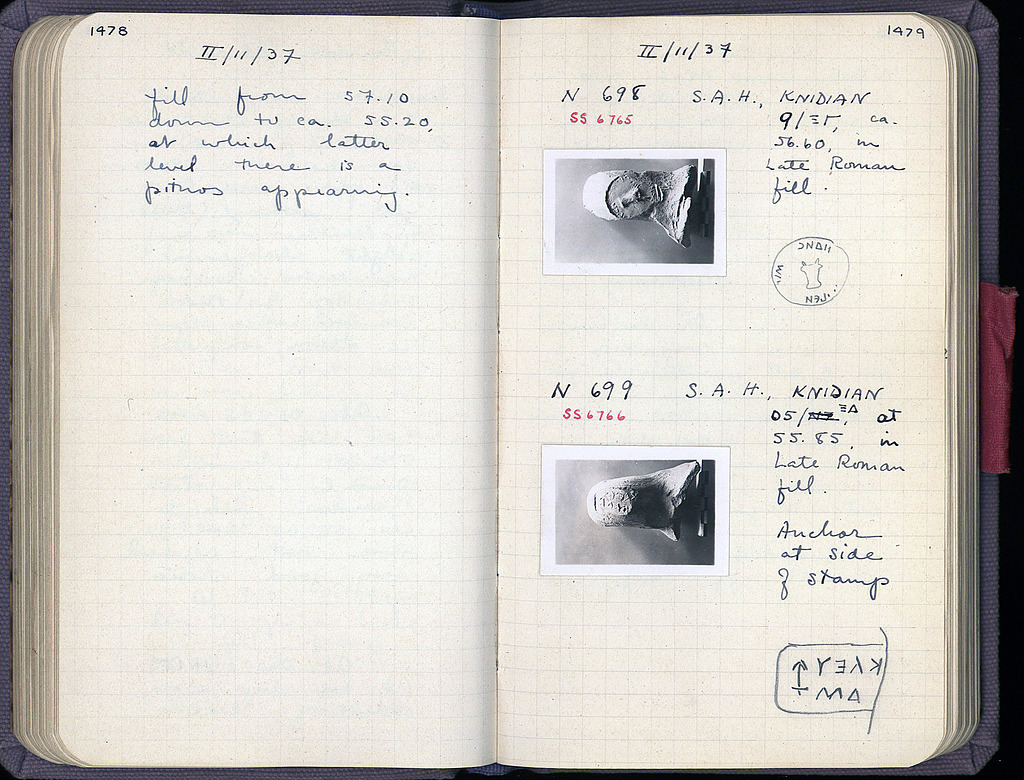 1478
II/11/37
fill from 57.10
down to ca. 55.20,
at which latter
level there is a
pithos appearing.
1479
II/11/37
N 698 S.A.H., KNIDIAN
SS 6765
9/ΞΓ, ca.
56.60, in
Late Roman
fill.
N 699 S.A.H., KNIDIAN
SS 6766
05/ ΞΔ, at
55.85, in
Late Roman
fill.
Anchor
at side
of stamp